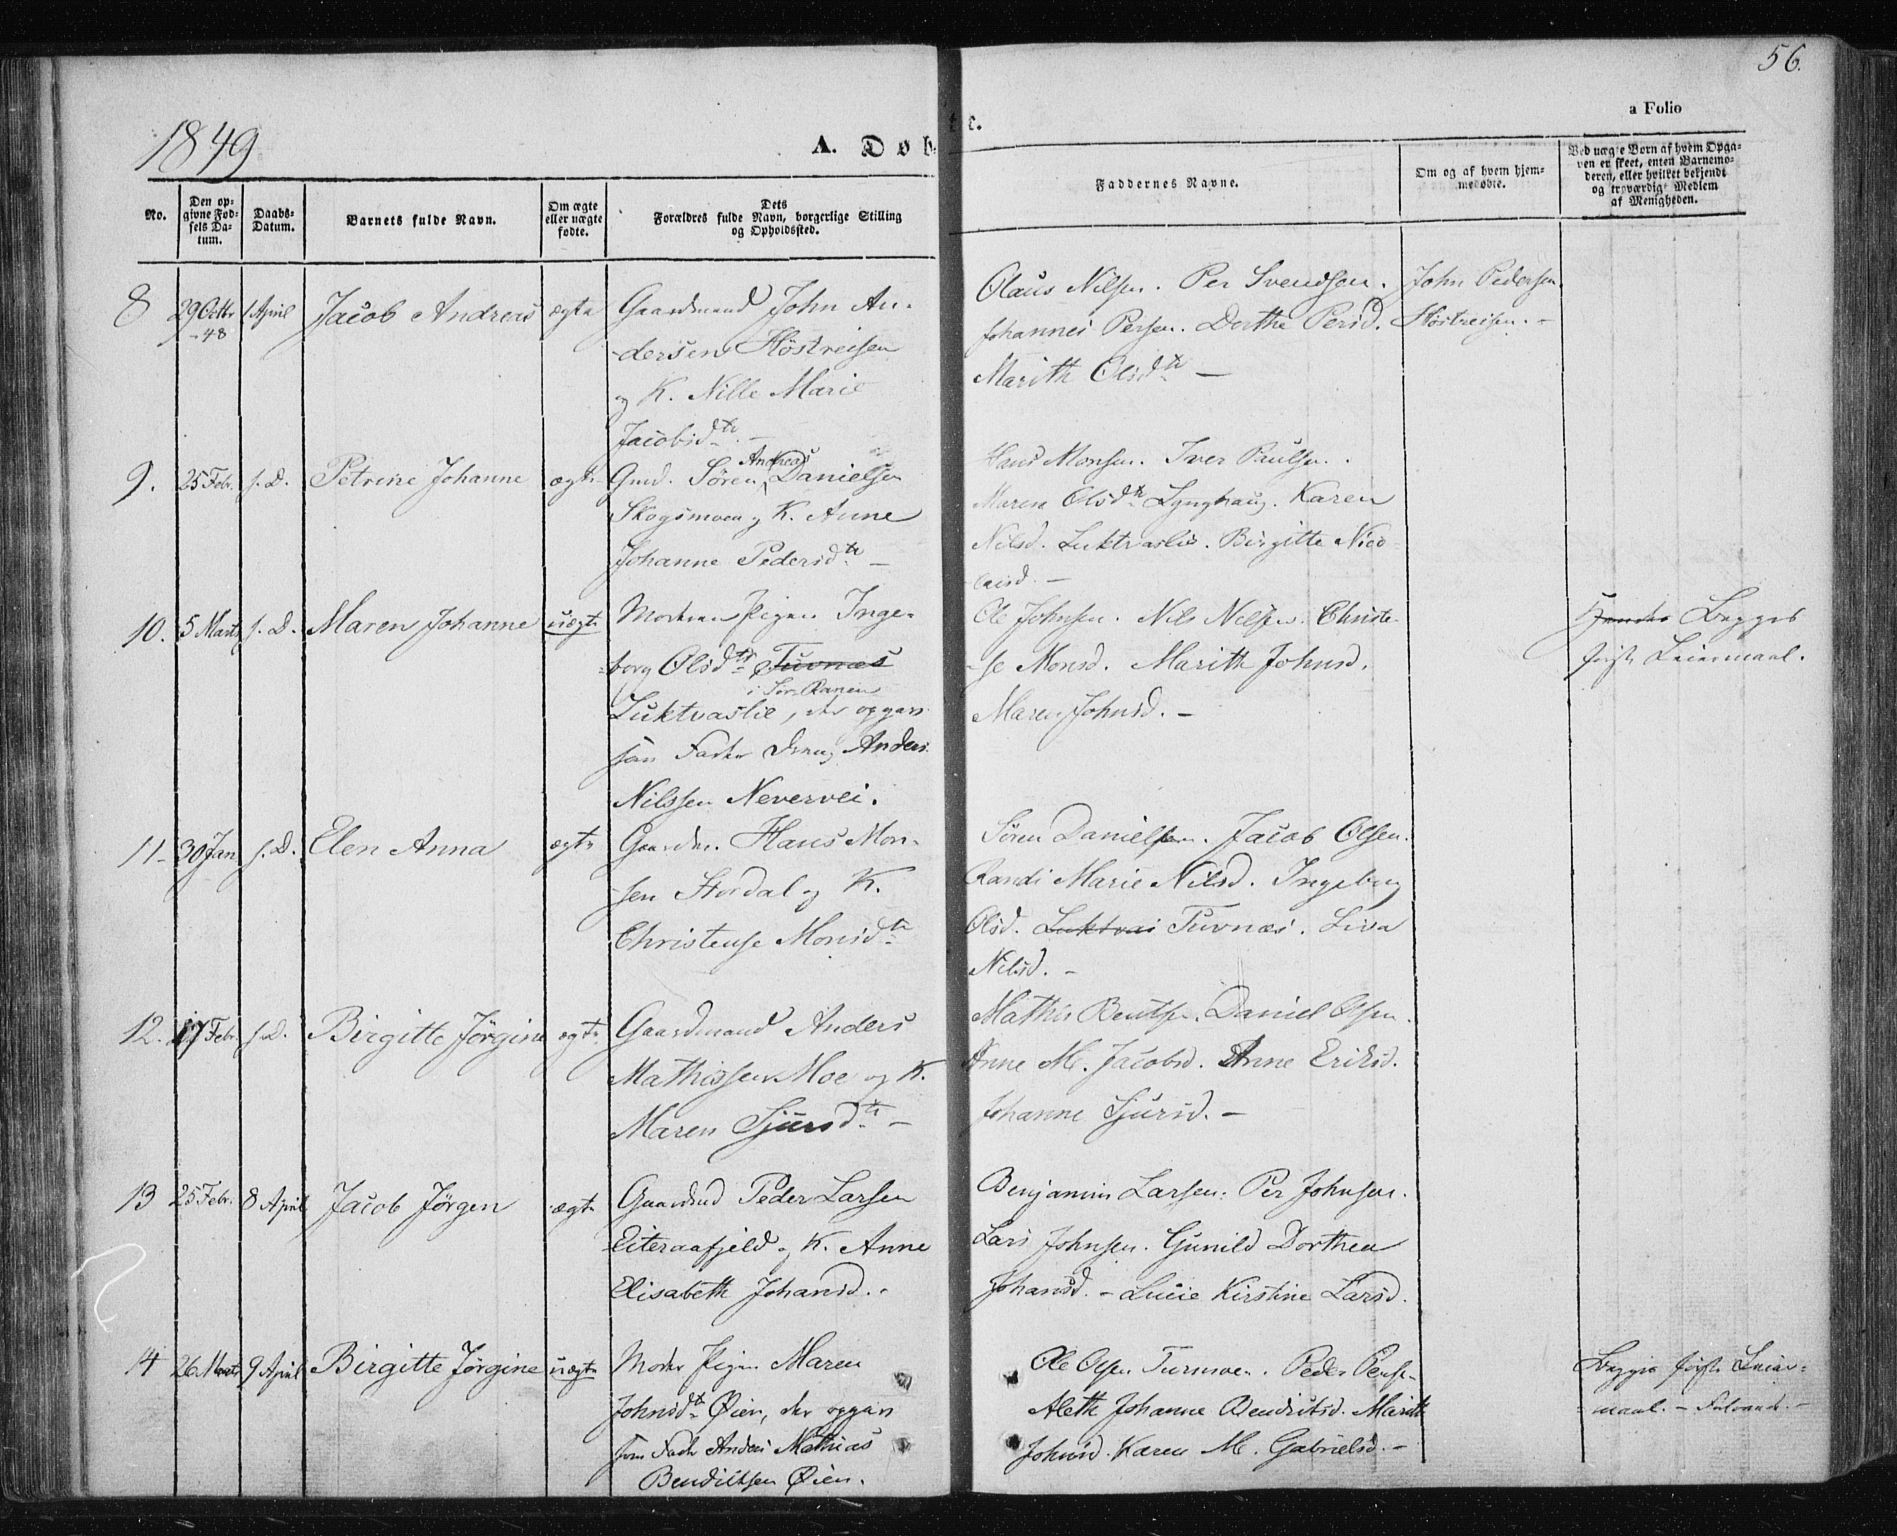 56.
a Folio
1849
A. Døb te.
No.
Den op-
givne Fød-
sels Da-
tum.
Daabs-
Datum.
Barnets fulde Navn.
Om ægte
eller uægte
fødte.
Dets
Forældres fulde Navn, borgerlige Stilling
og Opholdssted.
Faddernes Navne.
Om og af hvem hjem-
medøbte.
Ved uægte Børn af hvem Opga-
ven er skeet, enten Barnemo-
deren, eller hvilket bekjendt
og troværdigt Medlem
af Menigheden.
8 29 Octbr 1 April Jacob Andreas ægte Gaardmand John An-
-48
dersen Høstreisen
og K. Nille Marie
Jacobsdtr. -
Olaus Nilsen. Per Svendsen.
Johannes Persen. Dorthe Persd.
Marith Olsdtr -
John Pedersen
Høstreisen. -
9. 25 Febr. s. D. Petrine Johanne ægte Gmd. Søren Andreas Danielsen
Skogsmoen og K. Anne
Johanne Pedersdtr. -
Hans Monsen. Iver Paulsen.
Maren Olsdtr Lynghaug. Karen
Nilsd. Luktvaslie. Birgitte Nico-
laisd. -
10. 5 Marts s. D. Maren Johanne uægte Moderen Pigen Inge-
borg Olsdtr Tuvnæs
i Sør-Ranen
Luktvaslie, der opgav
som Fader Anders
Nilssen Nevervei.
Ole Johnsen. Nils Nilsen. Christe-
se Monsd. Marith Johnsd.
Maren Johnsd. -
Begges
første Leiermaal.
11- 30 Jan s. D. Elen Anna ægte Gaardm. Hans Mon-
sen Stordal og K.
Christense Monsdtr
Søren Danielsen. Jacob Olsen.
Randi Marie Nilsd. Ingeborg
Olsd. Luktvas Tuvnæs. Lisa
Nilsd. -
12. 17 Febr. s. D. Birgitte Jørgine ægte Gaardmand Anders
Mathissen Moe og K.
Maren Sjursdtr. -
Mathis Bentsen. Daniel Olsen.
Anne M. Jacobsd. Anne Eriksd.
Johanne Sjursd. -
13 25 Febr. 8 April Jacob Jørgen ægte Gaardmd Peder Larsen
Eiteraafjeld og K. Anne
Elisabeth Johansd. -
Benjamin Larsen. Per Johnsen.
Lars Johnsen. Gunild Dorthea
Johansd. - Lucie Kirstine Larsd.
14 26 Marts 9 April Birgitte Jørgine uægte Moder Pigen Maren
Johnsdtr Øien, der opgav
som Fader Anders Mathias
Bendiktsen Øien.
Ole Olsen Turmoen. Peder
Aleth Johanne Bendiktsd. Marith
Johnsd. Karen M. Gabrielsd. -
Begges første Leier-
maal. -